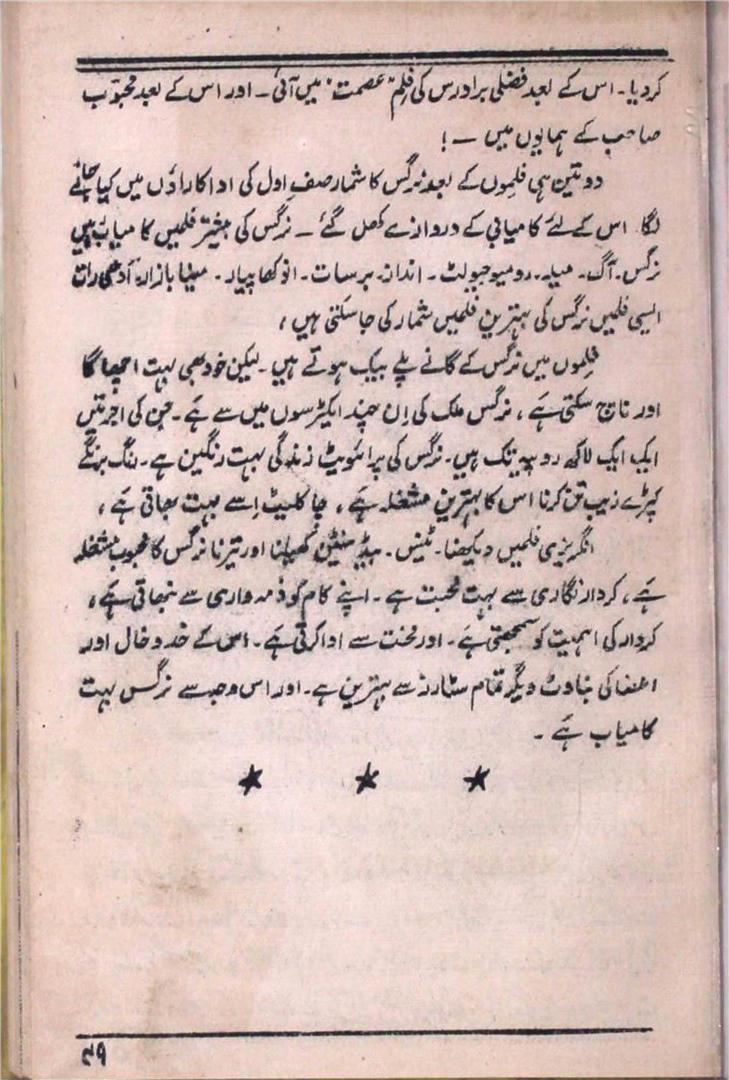 کردیا۔ اس کے بعد فضلی برادرس کی فلم "عصمت" میں آئی۔ اور اس کے بعد محبوب
صاحب کے ہمایوں میں ۔!
دو تین ہی فلموں کے بعد نرگس کا شمار صفِ اول کی اداکاراؤں میں کیا جانے
لگا۔ اس کے لئے کامیابی کے دروازے کھل گئے۔ نرگس کی بیشتر فلمیں کامیاب ہیں
نرگس۔ آگ۔ میلہ۔ رومیو جولٹ۔ انداز۔ برسات۔ انوکھا پیار۔ مینا بازار۔ آدھی رات
ایسی فلمیں نرگس کی بہترین فلمیں شمار کی جا سکتی ہیں،
فلموں میں نرگس کے گانے پلے بیک ہوتے ہیں۔ لیکن خود بھی بہت اچھا گا
اور ناچ سکتی ہے، نرگس ملک کی اِن چند ایکٹرسوں میں سے ہے۔ جن کی اجرتیں
ایک ایک لاکھ روپیہ تک ہیں۔ نرگس کی پرائویٹ زندگی بہت رنگین ہے۔ رنگ برنگے
کپڑے زیب تن کرنا اس کا بہترین مشغلہ ہے، چاکلیٹ اِسے بہت بھاتی ہے،
انگریزی فلمیں دیکھنا۔ ٹینس۔ بیڈ منٹن کھیلنا اور تیرنا نرگس کا محبوب مشغلہ
ہے، کردار نگاری سے بہت محبت ہے۔ اپنے کام کو ذمہ داری سے نبھاتی ہے،
کردار کی اہمیت کو سمجھتی ہے۔ اور محنت سے ادا کرتی ہے۔ اس کے خدوخال اور
اعضا کی بناوٹ دیگر تمام سٹارز سے بہترین ہے۔ اور اس وجہ سے نرگس بہت
کامیاب ہے۔